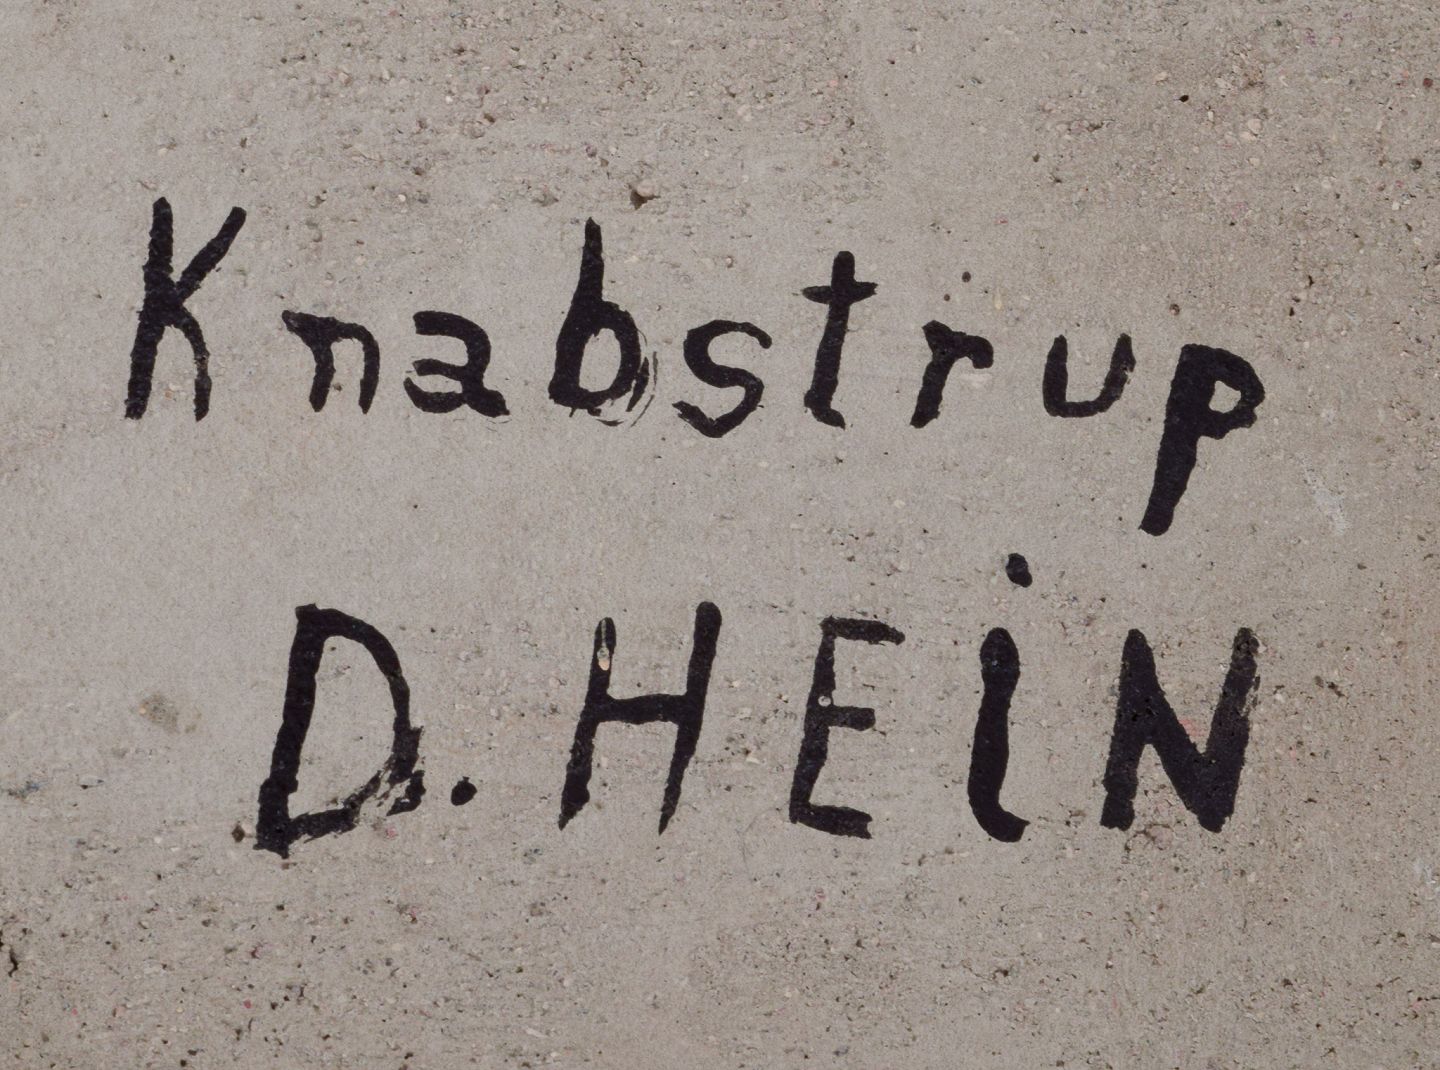 Knabstrup
D. HEiN